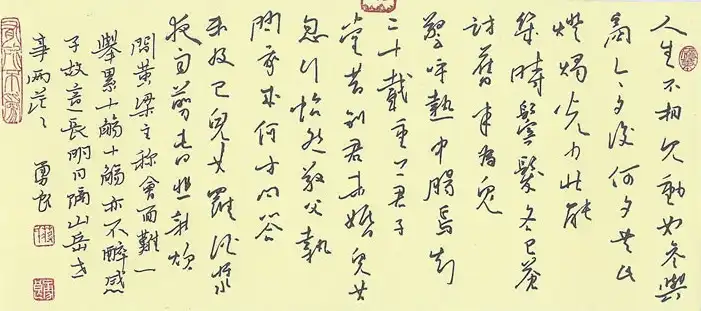 人生不相见動如參與
商今夕復何夕共此
燈燭光少壯能
幾時鬢髮各已蒼
訪舊半為鬼
驚呼熱中腸焉知
二十載重上君子
堂昔別君未婚兒女
忽行怡然敬父執
問我來何方問答
未及已兒女羅酒漿
夜雨剪春韭新炊
間黄梁主称會面難一
舉累十觴十觴亦不醉感
子故意長明日隔山岳世
事兩茫々 勇